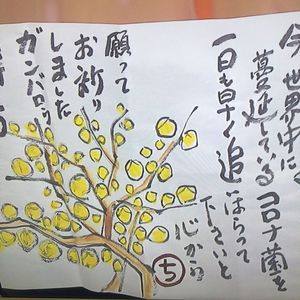 今 世界中に
蔓延している
コロナ菌を
一日も早く追
いはらって
下さいと
心から
願って
お祈り
しました
ガンバロウ
ち